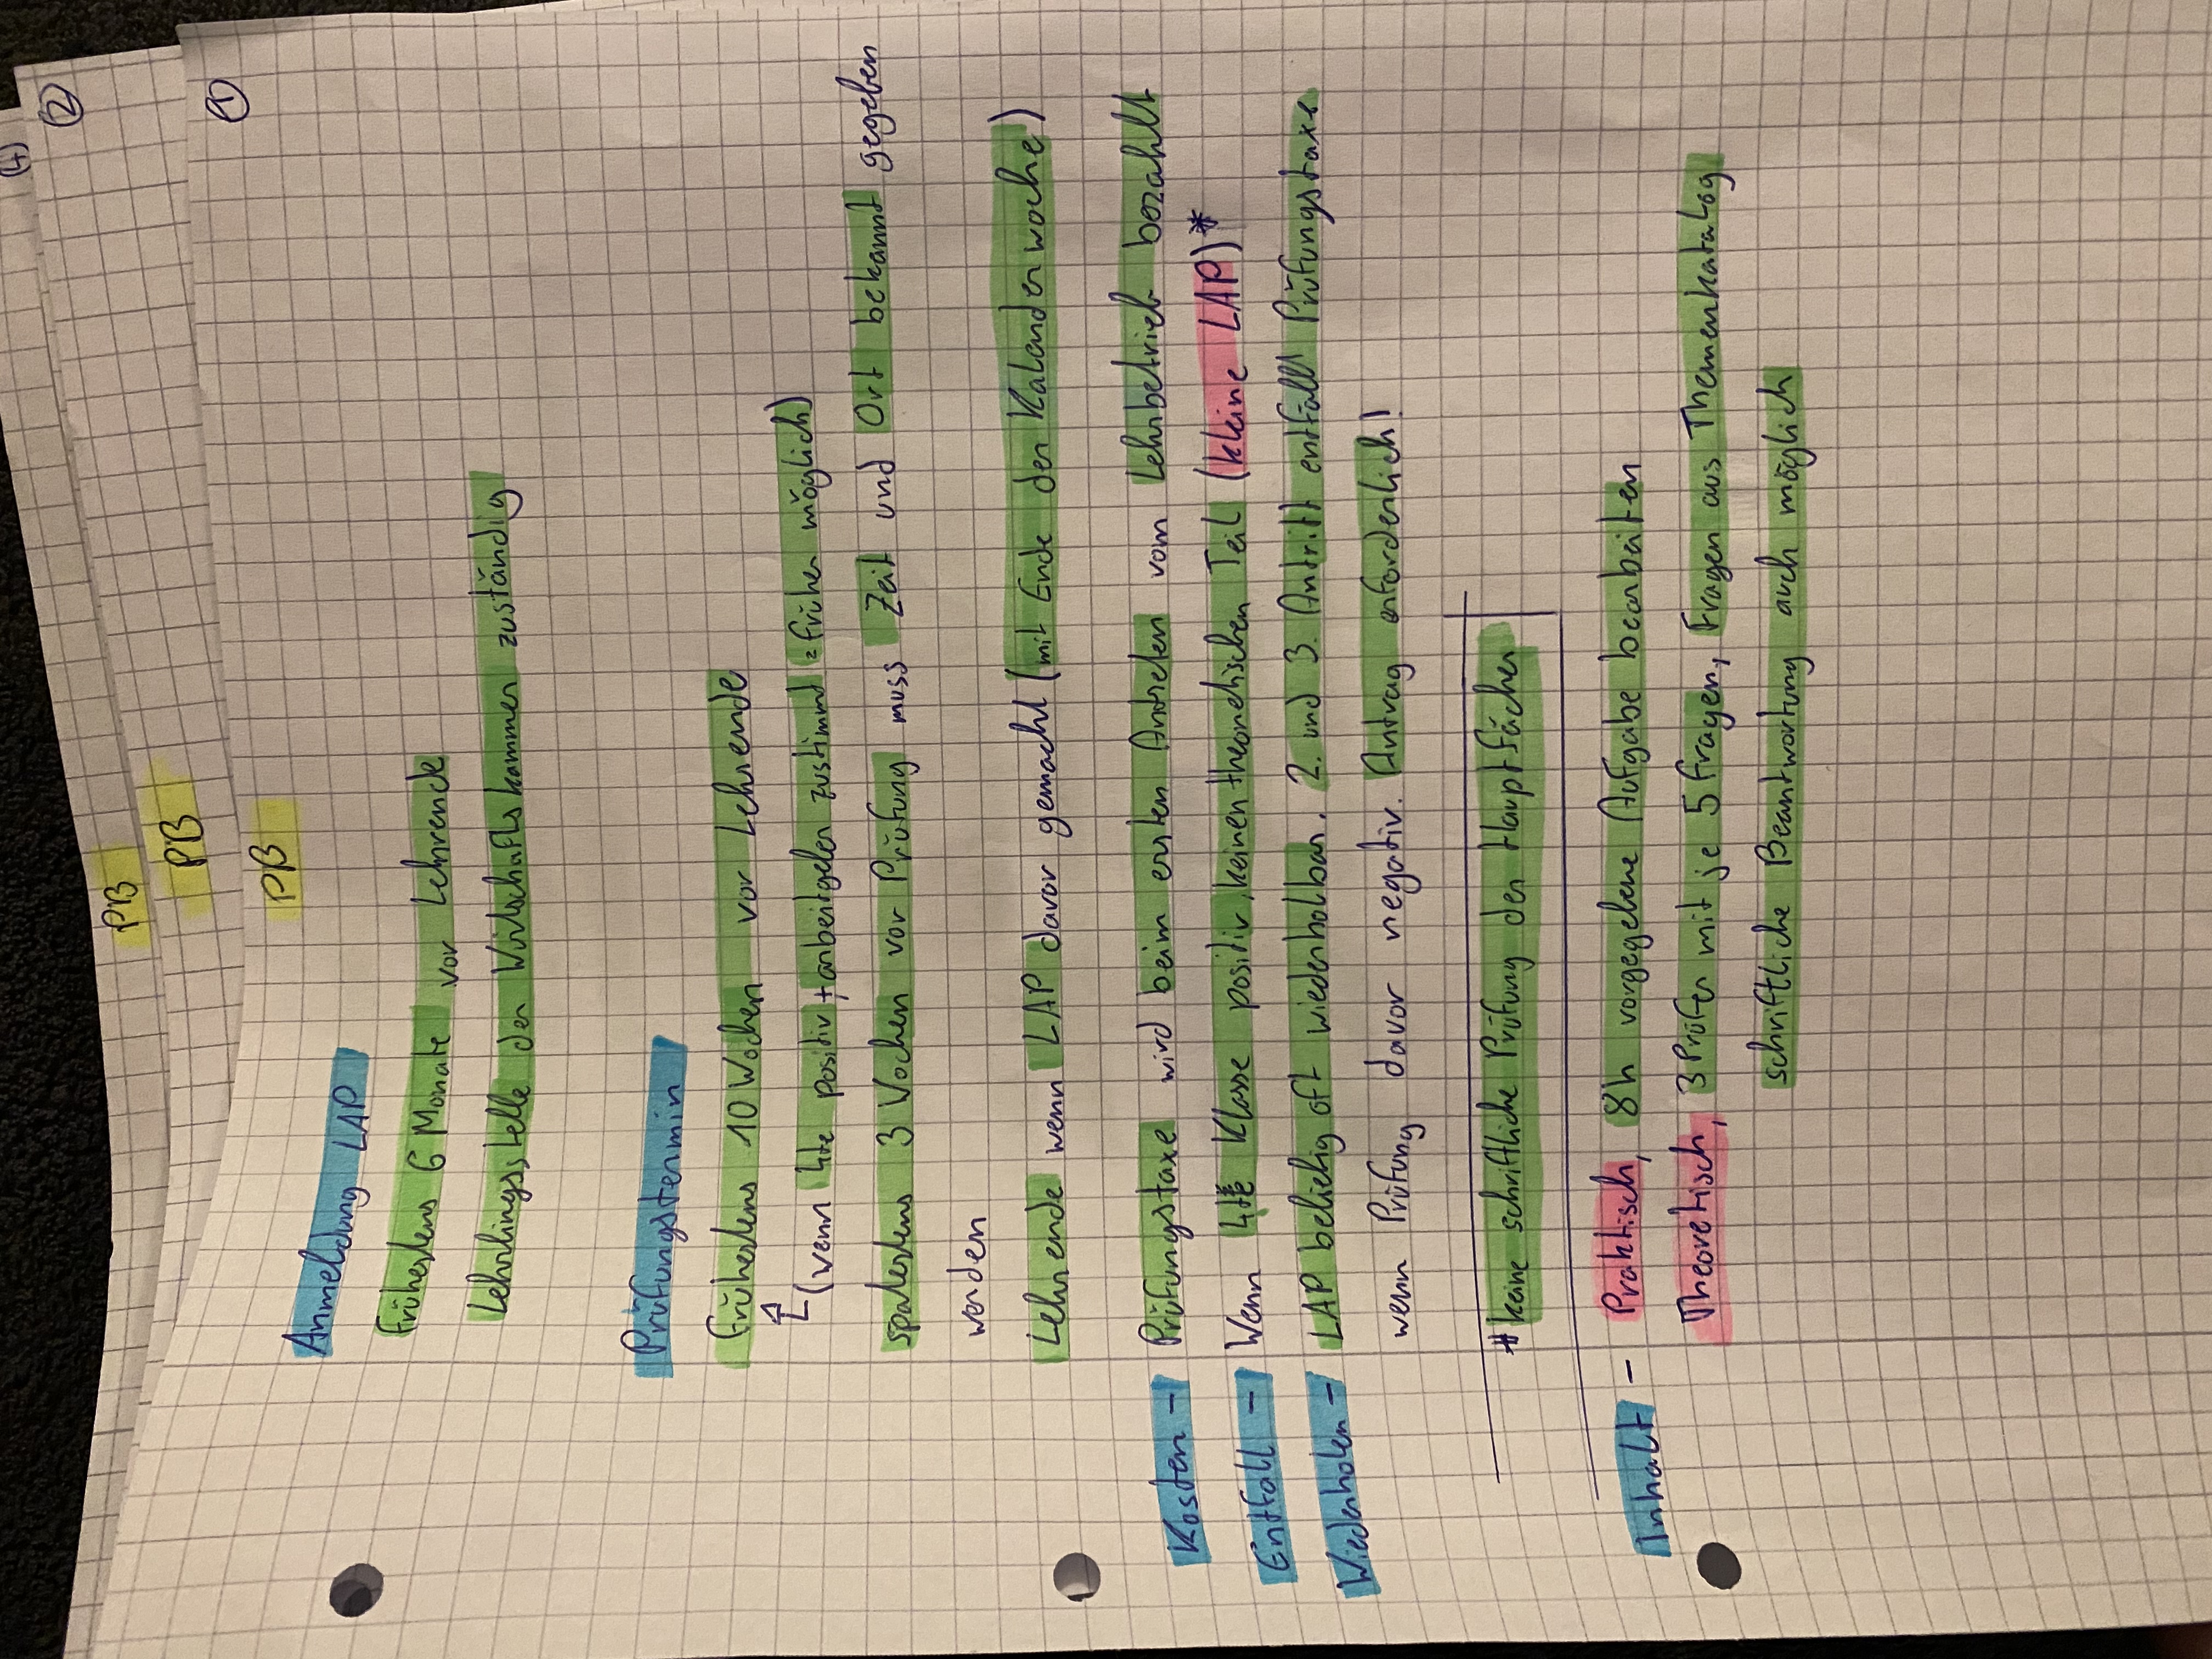 (4)
PB
(2)
PB
(1)
PB
Anmeldung LAP
frühestens 6 Monate vor Lehrende
Lehrlingsstelle der Wirtschaftskammer zuständig
Prüfungstermin
frühestens 10 Wochen vor Lehrende
(wenn 4te positiv + arbeitgeber zustimmt = früher möglich)
spätestens 3 Wochen vor Prüfung muss Zeit und Ort bekannt gegeben
werden
Lehrende wenn LAP davor gemacht (mit Ende der Kalenderwoche)
Kosten - Prüfungstaxe wird beim ersten Antreten vom Lehrbetrieb bezahlt
Entfall - Wenn 4te Klasse positiv, keinen theoretischen Teil (kleine LAP)*
Wiederholen - LAP beliebig oft wiederholbar. 2. und 3. Antritt entfällt Prüfungstaxe
wenn Prüfung davor negativ. Antrag erforderlich!
* keine schriftliche Prüfung der Hauptfächer
Inhalt - Praktisch, 8h vorgegebene Aufgabe bearbeiten
Theoretisch, 3 Prüfer mit je 5 fragen, Fragen aus Themenkatalog
schriftliche Beantwortung auch möglich